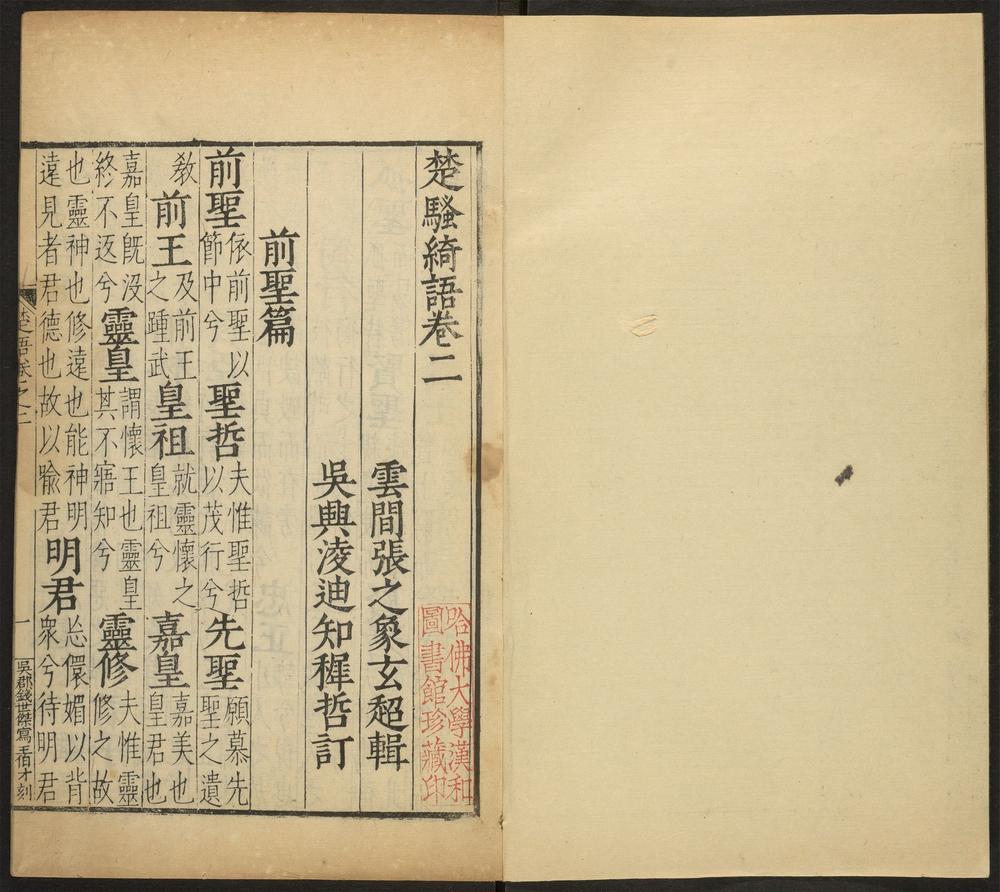 楚騷綺語卷二
哈佛大學漢和
圖書館珍藏印
雲間張之象玄超輯
吳興淩迪知穉哲訂
前聖篇
前聖依前聖以節中兮聖哲夫惟聖哲以茂行兮先聖願慕先聖之遺
教前王及前王之踵武皇祖就靈懷之皇祖兮嘉皇嘉美也皇君也
嘉皇旣沒終不返兮靈皇謂懷王也靈皇其不寤知兮靈修夫惟靈修之故
也靈神也修遠也能神明遠見者君德也故以喻君明君忘儇媚以背衆兮待明君
卷之二
一
吳郡錢世傑寫